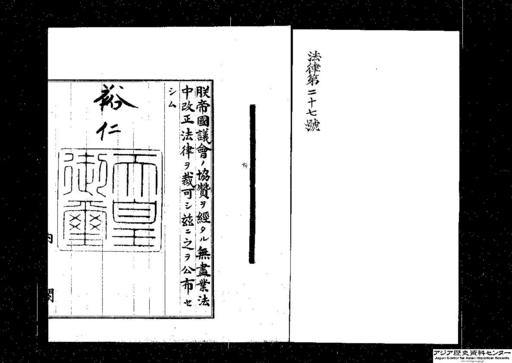 法律第二十七號
朕帝國議會ノ協贊ヲ經タル無盡業法
中改正法律ヲ裁可シ茲ニ之ヲ公布セ
シム
裕仁
天皇
御璽
内閣
アジア歴史資料センター
Japan Center for Asian Historical Records